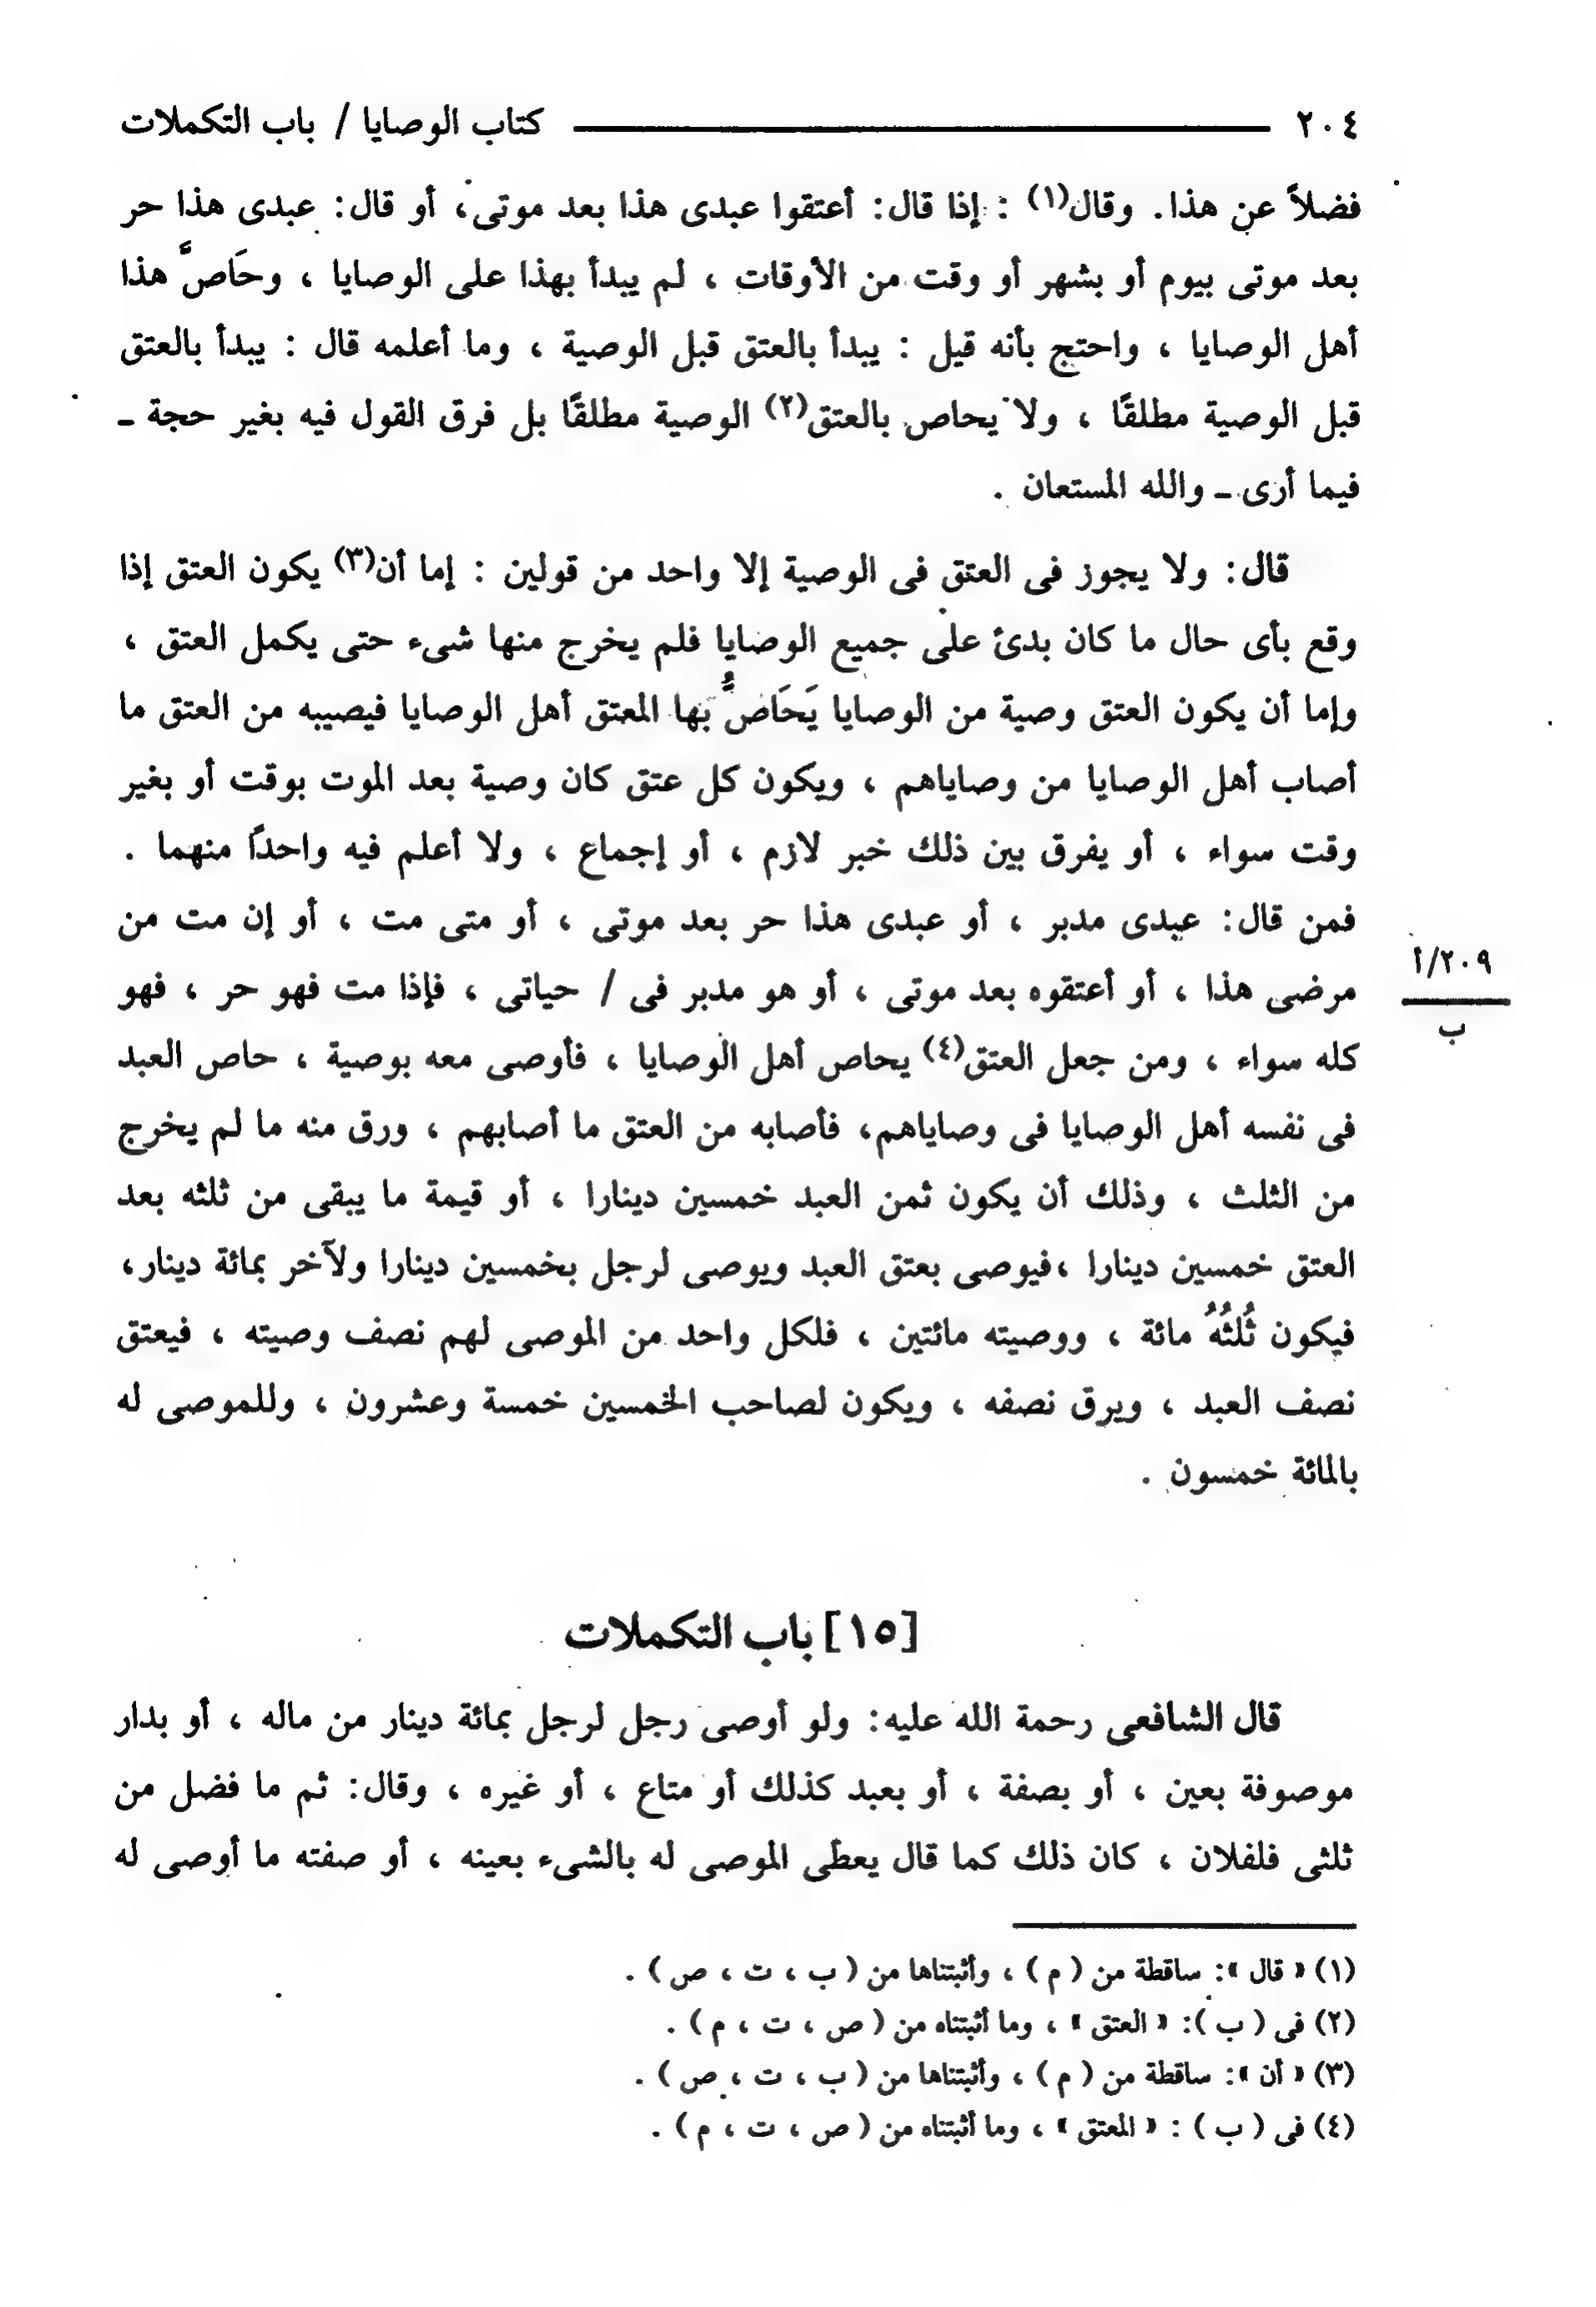 ٢٠٤ كتاب الوصايا / باب التكملات
فضلاً عن هذا. وقال(١) : إذا قال: أعتقوا عبدى هذا بعد موتى، أو قال: عبدى هذا حر
بعد موتى بيوم أو بشهر أو وقت من الأوقات ، لم يبدأ بهذا على الوصايا ، وحَاصَّ هذا
أهل الوصايا ، واحتج بأنه قيل : يبدأ بالعتق قبل الوصية ، وما أعلمه قال : يبدأ بالعتق
قبل الوصية مطلقًا ، ولا يحاص بالعتق(٢) الوصية مطلقًا بل فرق القول فيه بغير حجة ـ
فيما أرى ـ والله المستعان .
قال: ولا يجوز فى العتق فى الوصية إلا واحد من قولين : إما أن(٣) يكون العتق إذا
وقع بأى حال ما كان بدئ على جميع الوصايا فلم يخرج منها شىء حتى يكمل العتق ،
وإما أن يكون العتق وصية من الوصايا يَحَاصُّ بها المعتق أهل الوصايا فيصيبه من العتق ما
أصاب أهل الوصايا من وصاياهم ، ويكون كل عتق كان وصية بعد الموت بوقت أو بغير
وقت سواء ، أو يفرق بين ذلك خبر لازم ، أو إجماع ، ولا أعلم فيه واحدًا منهما .
فمن قال: عبدى مدبر ، أو عبدى هذا حر بعد موتى ، أو متى مت ، أو إن مت من
مرضى هذا ، أو أعتقوه بعد موتى ، أو هو مدبر فى / حياتى ، فإذا مت فهو حر ، فهو
٢٠٩/أ
ب
كله سواء ، ومن جعل العتق(٤) يحاص أهل الوصايا ، فأوصى معه بوصية ، حاص العبد
فى نفسه أهل الوصايا فى وصاياهم، فأصابه من العتق ما أصابهم ، ورق منه ما لم يخرج
من الثلث ، وذلك أن يكون ثمن العبد خمسين دينارا ، أو قيمة ما يبقى من ثلثه بعد
العتق خمسين دينارا ،فيوصى بعتق العبد ويوصى لرجل بخمسين دينارا ولآخر بمائة دينار،
فيكون ثُلثُهُ مائة ، ووصيته مائتين ، فلكل واحد من الموصى لهم نصف وصيته ، فيعتق
نصف العبد ، ويرق نصفه ، ويكون لصاحب الخمسين خمسة وعشرون ، وللموصى له
بالمائة خمسون .
[١٥] باب التكملات
قال الشافعى رحمة الله عليه: ولو أوصى رجل لرجل بمائة دينار من ماله ، أو بدار
موصوفة بعين ، أو بصفة ، أو بعبد كذلك أو متاع ، أو غيره ، وقال: ثم ما فضل من
ثلثى فلفلان ، كان ذلك كما قال يعطى الموصى له بالشىء بعينه ، أو صفته ما أوصى له
(١) « قال »: ساقطة من ( م ) ، وأثبتناها من ( ب ، ت ، ص ) .
(٢) فى ( ب ): « العتق » ، وما أثبتناه من ( ص ، ت ، م ) .
(٣) « أن »: ساقطة من ( م ) ، وأثبتناها من ( ب ، ت ، ص ) .
(٤) فى ( ب ) : « المعتق » ، وما أثبتناه من ( ص ، ت ، م ) .